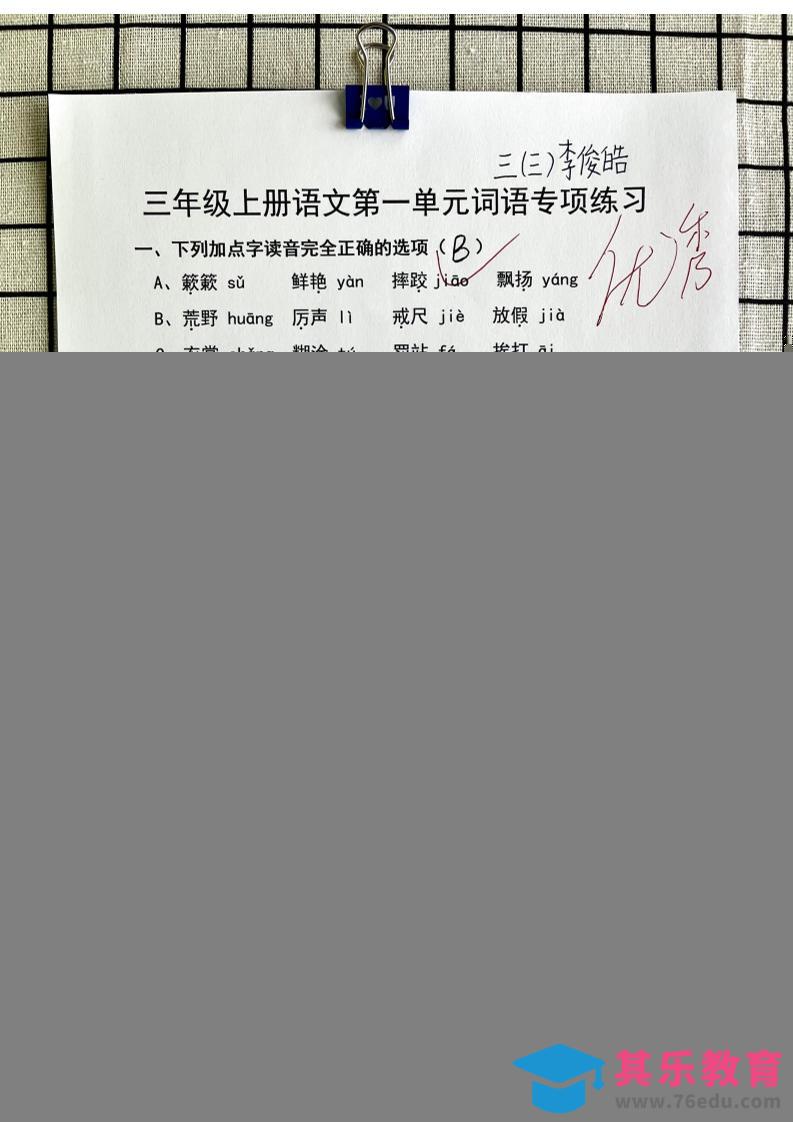 三(三)李俊皓
三年级上册语文第一单元词语专项练习
一、下列加点字读音完全正确的选项(B)
优秀
A、簌簌 sǔ 鲜艳 yàn 摔跤 jiāo 飘扬 yáng
B、荒野 huāng 厉声 lì 戒尺 jiè 放假 jià
其乐教育
www.76edu.com